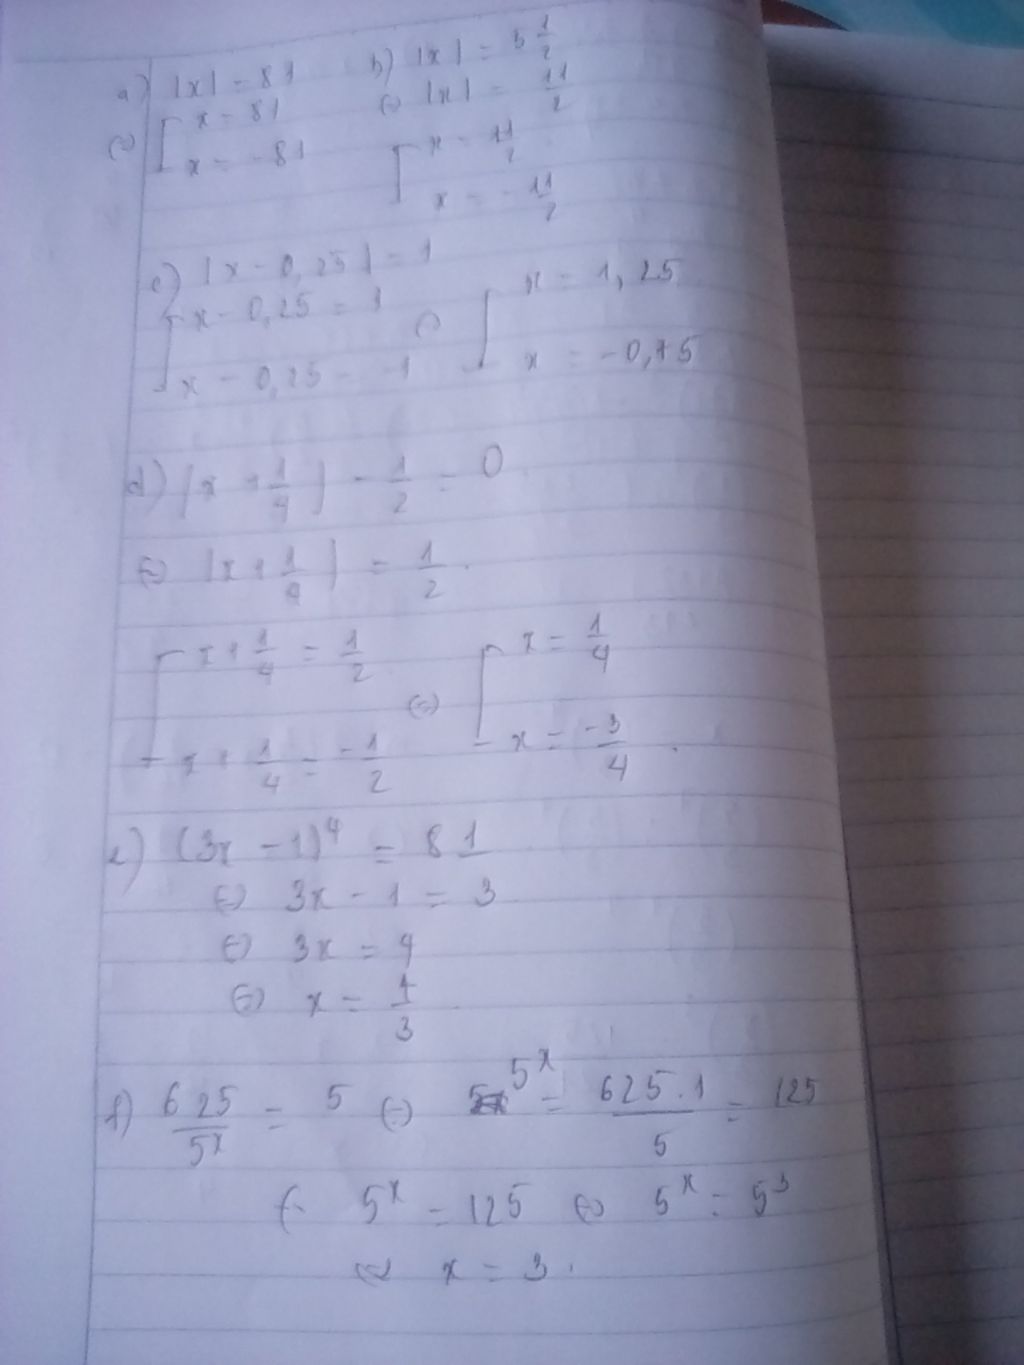 a) |x| = 81
(=) [ x = 81
x = -81
b) |x| = 5 1/2
(=) |x| = 11/2
[ x = 11/2
x = -11/2
c) |x - 0,25| = 1
[ x - 0,25 = 1
x - 0,25 = -1
(=) [ x = 1,25
x = -0,75
d) |x + 1/4| - 1/2 = 0
(=) |x + 1/4| = 1/2.
[ x + 1/4 = 1/2
x + 1/4 = -1/2
(=) [ x = 1/4
x = -3/4.
e) (3x - 1)⁴ = 81
(=) 3x - 1 = 3
(=) 3x = 4
(=) x = 4/3
f) 625/5ˣ = 5 (=) 5ˣ = 625.1/5 = 125
(=) 5ˣ = 125 (=) 5ˣ = 5³
(=) x = 3.